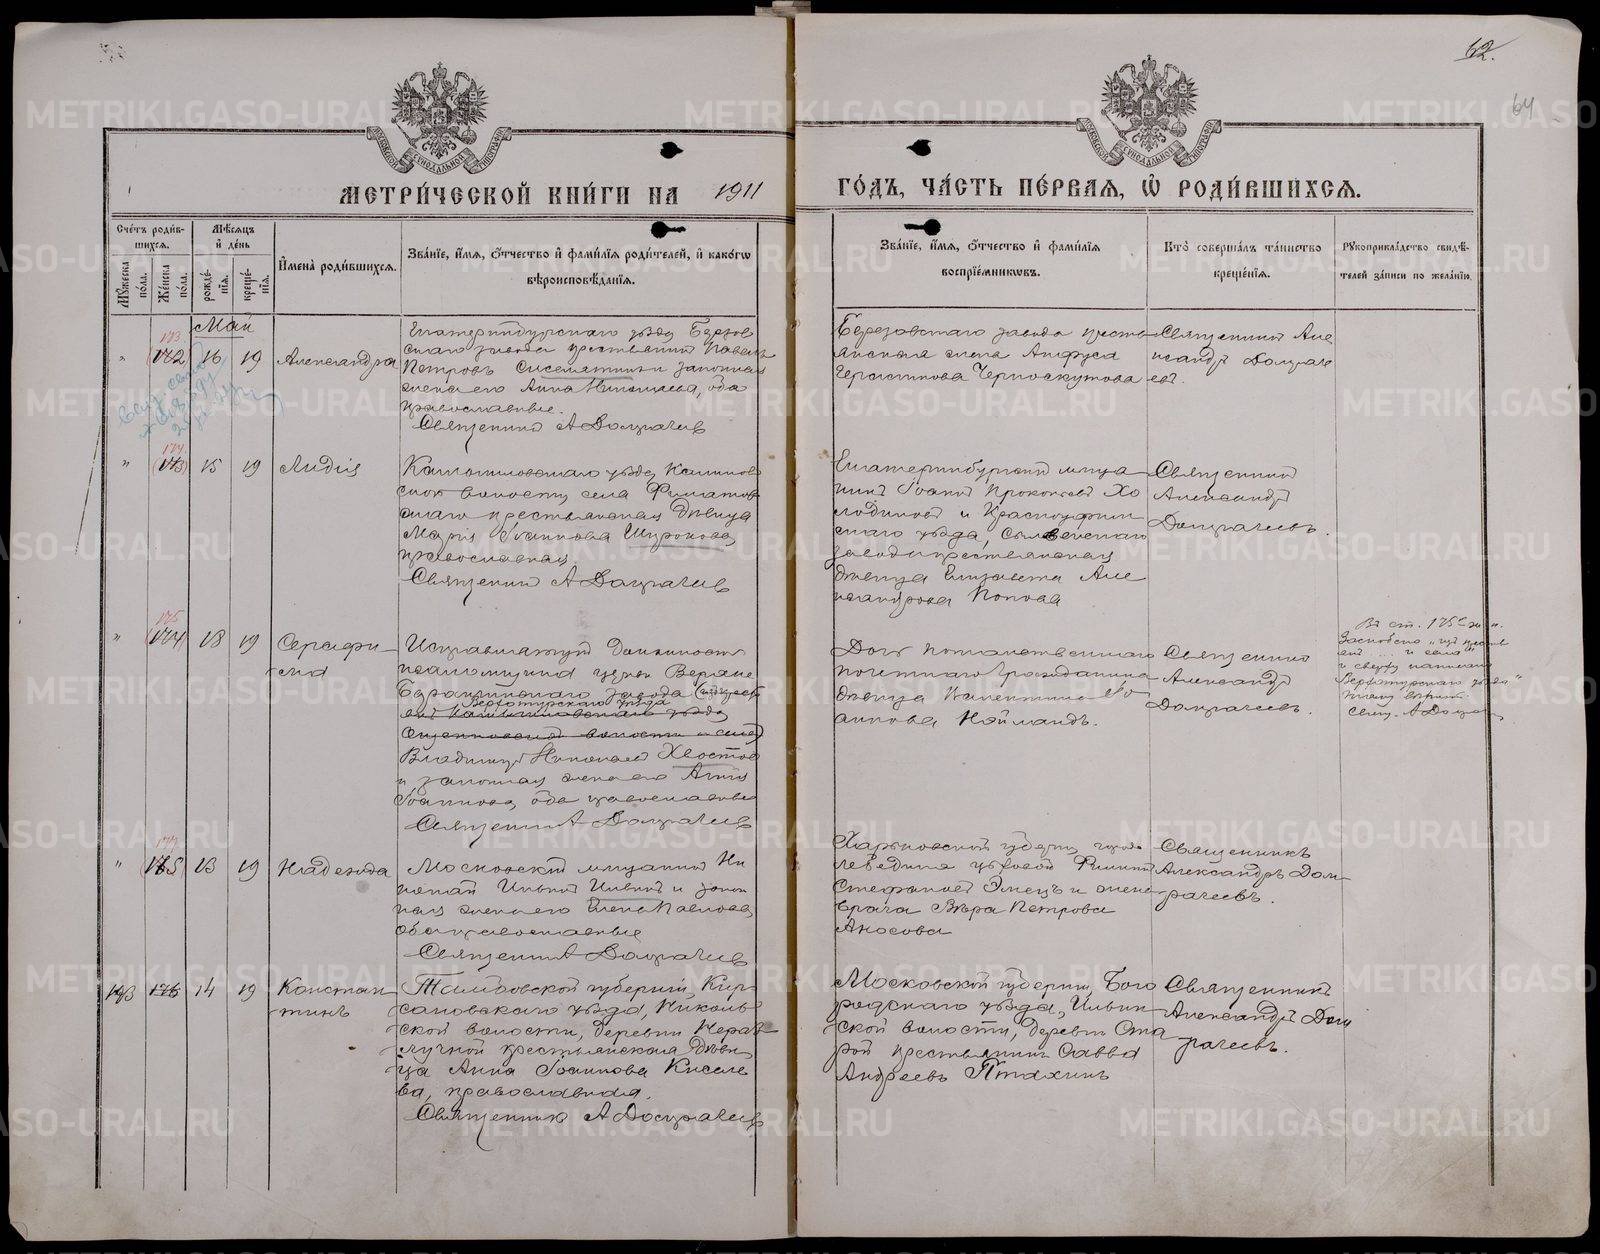 62.
64
МЕТРИ́ЧЕСКОЙ КНИ́ГИ НА 1911
ГО́ДЪ, ЧА́СТЬ ПЕ́РВАЯ, Ѡ҆ РОДИ́ВШИХСѦ.
Сче́тъ роди́в-
шихсѧ.
Мꙋ́жеска по́ла.
Же́нска по́ла.
Мѣ́сѧцъ и҆ де́нь
рожде́-
нїѧ.
креще́-
нїѧ.
И҆мена̀ роди́вшихсѧ.
Зва́нїе, и҆́мѧ, ѻ҆́тчество и҆ фами́лїѧ роди́телей, и҆ како́гѡ
вѣроисповѣ́данїѧ.
Зва́нїе, и҆́мѧ, ѻ҆́тчество и҆ фами́лїѧ
воспрїе́мникѡвъ.
Кто̀ соверша́лъ та́инство
креще́нїѧ.
Рꙋкоприкла́дство свидѣ́-
телей за́писи по жела́нїю.
Май
173
" 172 16 19 Александра
Екатеринбургскаго уѣзда Березов
скаго завода крестьянинъ Павелъ
Петровъ и законная
жена его Анна Николаева, оба
православные.
Священникъ А Домрачеев
Березовскаго завода кресть
янская жена Анфуса
Герасимова Черноскутова
Священникъ Але
ксандръ Домраче
евъ.
174
" 173 15 19 Лидія
Камышловскаго уѣзда
ской волости села
скаго крестьянская дѣвица
Марія Іоаннова Широкова,
православная
Священникъ А Домрачеев
Екатеринбургскій мѣща
нинъ Іоаннъ Прокопьевъ Хо
лодиловъ и Красноуфим
скаго уѣзда, Сылвенскаго
завода крестьянская
дѣвица Елизавета Але
ксандрова Попова
Священникъ
Александръ
Домрачеевъ.
175
" 174 18 19 Серафи-
ма
Исправляющій должность
псаломщика церкви Верхне
завода (изъ крест
Верхотурскаго уѣзда
янъ Камышловскаго уѣзда
волости и села)
Владиміръ Николаевъ Хвостов
и законная жена его Агнія
Іоаннова, оба православные
Священникъ А Домрачеев
Дочь потомственнаго
почетнаго гражданина
дѣвица Валентина
Нейландъ.
Священникъ
Александръ
Домрачеевъ.
Въ ст. 175
"изъ кресть
янъ ... и села"
и сверху написано
"Верхотурскаго уѣзда"
Свящ. А Домрач
177
" 175 13 19 Надежда
Московскій мѣщанинъ Ни
колай Ильинъ и закон
ная жена его Елена Павлова,
оба православные
Священникъ А Домрачеев
Харьковской губерніи города
Лебедина цеховой
Стефановъ Эмецъ и жена
врача Вѣра Петрова
Аносова
Священникъ
Александръ Дом
рачеевъ.
193 176 14 19 Констан
тинъ
Тамбовской губерніи, Кир
сановскаго уѣзда, Николь
ской волости, деревни
крестьянская дѣви
ца Анна Іоаннова Киселе
ва, православная.
Священникъ А Домрачеев
Московской губерніи, Бого
родскаго уѣзда, Ильин
ской волости, деревни Ста
рой крестьянинъ Савва
Андреевъ Птахинъ
Священникъ
Александръ Дом
рачеевъ.
METRIKI.GASO-URAL.RU